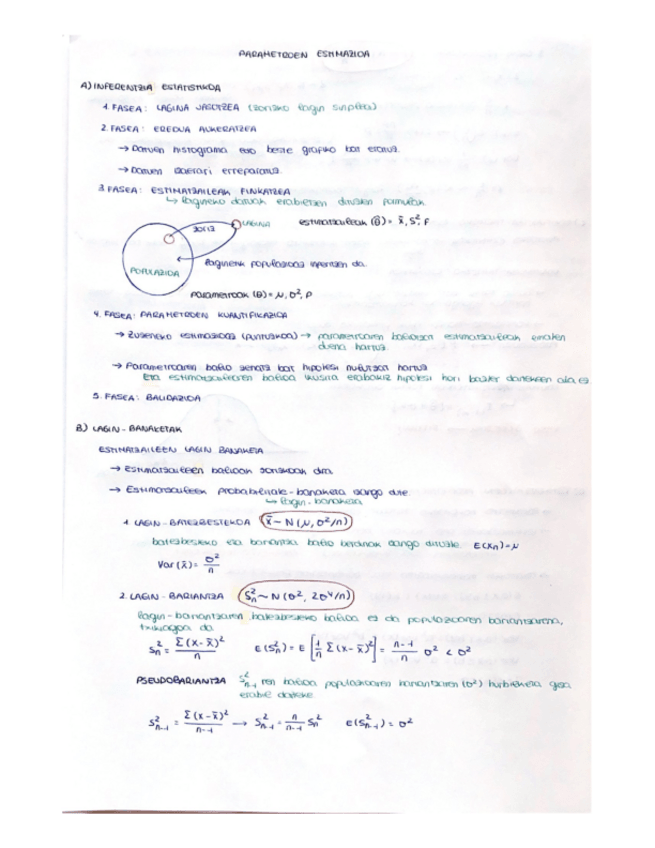 PARAMETROEN ESTIMAZIOA
A) INFERENTZIA ESTATISTIKOA
1. FASEA: LAGINA JASOTZEA (zorizko lagin sinplea)
2. FASEA: EREDUA AUKERATZEA
→ Datuen histograma edo beste grafiko bat eratuz.
→ Datuen izaerari erreparatuz.
3. FASEA: ESTIMATZAILEAK FINKATZEA
↳ Lagineko datuak erabiltzen dituzten formulak.
LAGINA
estimatzaileak (θ̂) = x̄, S², P
POPULAZIOA
Laginetik populaziora inferitzen da.
Parametroak (θ) = μ, σ², P
4. FASEA: PARAMETROEN KUANTIFIKAZIOA
→ Zuzeneko estimazioa (PUNTUAKOA) → parametroaren balioa estimatzaileak ematen
duena hartuz.
→ Parametroaren balio zehatz bat hipotesi nulutzat hartuz
Eta estimatzailearen balioa ikusita erabakiz hipotesi hori baztertu daitekeen ala ez
5. FASEA: BALIDAZIOA
B) LAGIN-BANAKETAK
ESTIMATZAILEEN LAGIN BANAKETA
→ Estimatzaileen balioak zorizkoak dira.
→ Estimatzaileek probabilitate-banaketa izango dute.
↳ lagin-banaketa
1. LAGIN-BATEZBESTEKOA x̄ ~ N(μ, σ²/n)
batezbesteko eta bariantza balio berdinak izango dituzte. E(x̄n) = μ
Var(x̄) = σ²/n
2. LAGIN-BARIANTZA S²n ~ N(σ², 2σ⁴/n)
Lagin-bariantzaren batezbesteko balioa ez da populazioaren bariantzarena,
txikiagoa da
S²n = Σ(x-x̄)²/n E(S²n) = E[1/n Σ(x-x̄)²] = n-1/n σ² < σ²
PSEUDOBARIANTZA S²n-1 ren balioa populazioaren bariantzaren (σ²) hurbilketa gisa
erabil daiteke
S²n-1 = Σ(x-x̄)²/n-1 → S²n-1 = n/n-1 S²n E(S²n-1) = σ²